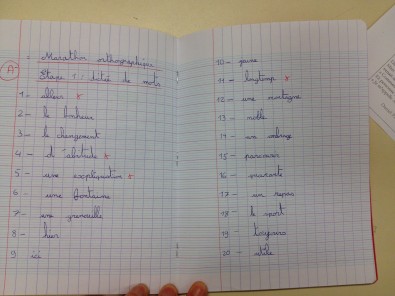 Marathon orthographique
A
Etape 1 : dictée de mots
1 - alleur x
2 - le bonheur
3 - le changement
4 - d'abitude x
5 - une expliquation x
6 - une fontaine
7 - une grenouille
8 - hier
9 ici
10 - jaune
11 - longtemp x
12 - une montagne
13 - noble
14 - un orage
15 - parcourir
16 - quarante
17 - un repas
18 - le sport
19 - toujours
20 - utile